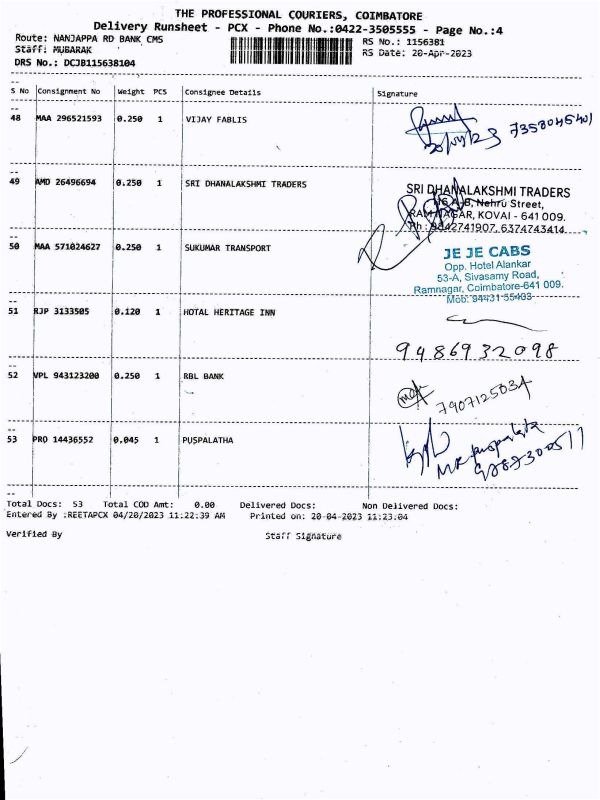 THE PROFESSIONAL COURIERS, COIMBATORE
Delivery Runsheet - PCX - Phone No.:0422-3505555 - Page No.:4
Route: NANJAPPA RD BANK CMS
RS No.: 1156381
Staff: MUBARAK
RS Date: 20-Apr-2023
DRS No.: DCJB115638104
S No Consignment No Weight PCS Consignee Details Signature
48 MAA 296521593 0.250 1 VIJAY FABLIS
7358045401
20/04/23
49 AMD 26496694 0.250 1 SRI DHANALAKSHMI TRADERS
SRI DHANALAKSHMI TRADERS
Nehru Street,
RAM NAGAR, KOVAI - 641 009.
Ph: 9842741907, 6374743414
50 MAA 571024627 0.250 1 SUKUMAR TRANSPORT
JE JE CABS
Opp. Hotel Alankar
53-A, Sivasamy Road,
Ramnagar, Coimbatore-641 009.
Mob: 94431 55403
51 RJP 3133505 0.120 1 HOTAL HERITAGE INN
9486932098
52 VPL 943123200 0.250 1 RBL BANK
7907125034
53 PRO 14436552 0.045 1 PUSPALATHA
Total Docs: 53 Total COD Amt: 0.00 Delivered Docs: Non Delivered Docs:
Entered By :REETAPCX 04/20/2023 11:22:39 AM Printed on: 20-04-2023 11:23:04
Verified By Staff Signature